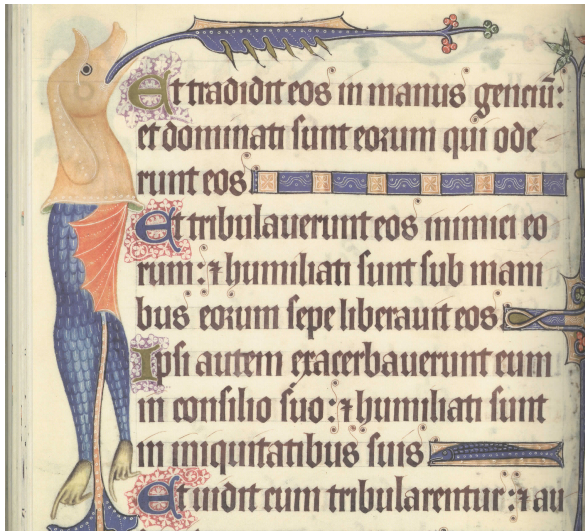 Et tradidit eos in manus genciū:
et dominati sunt eorum qui ode
runt eos
Et tribulauerunt eos inimici eo
rum: ⁊ humiliati sunt sub mani
bus eorum sepe liberauit eos
Ipsi autem exacerbauerunt eum
in consilio suo: ⁊ humiliati sunt
in iniquitatibus suis
Et uidit cum tribularentur: ⁊ au